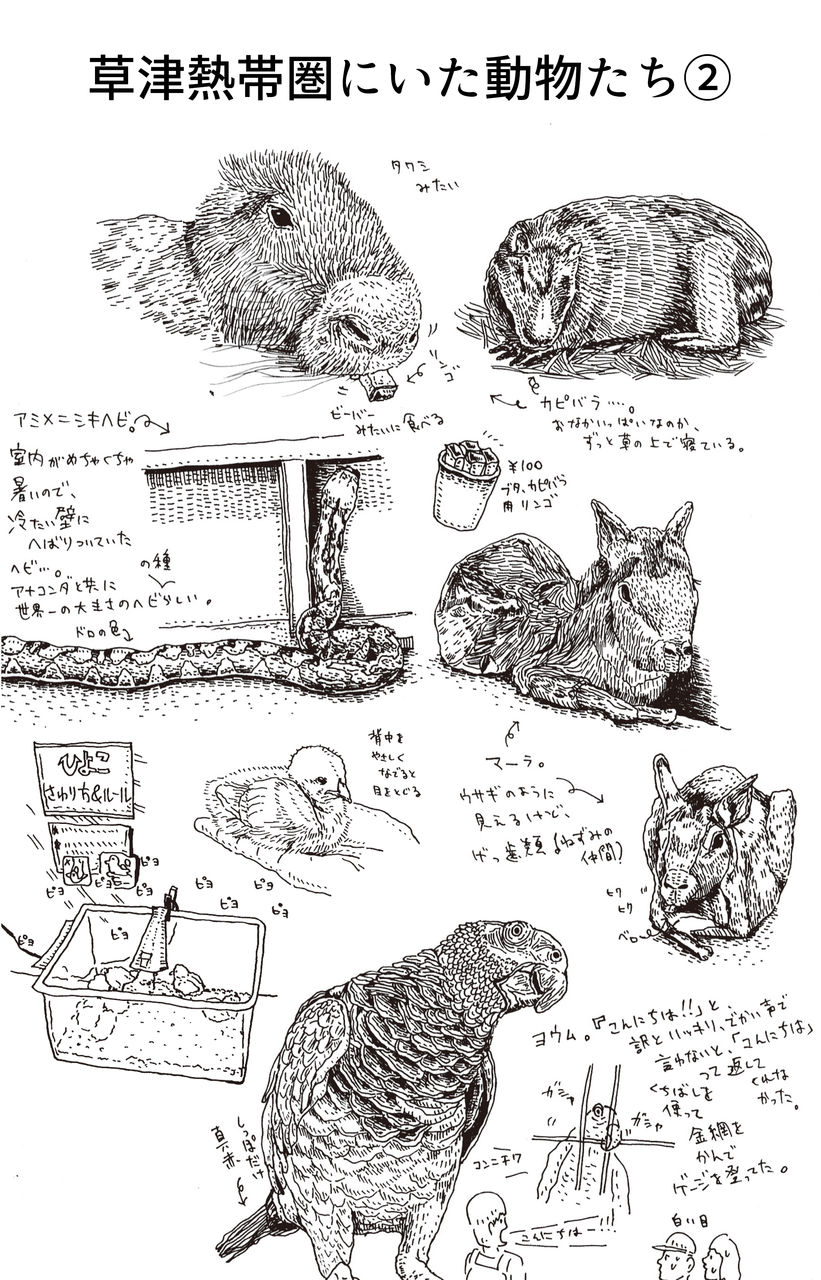 草津熱帯圏にいた動物たち②
タワシ
みたい
リンゴ
ビーバー
みたいに食べる
カピバラ……。
おなかいっぱいなのか、
ずっと草の上で寝ている。
アミメニシキヘビ。
室内がめちゃくちゃ
暑いので、
冷たい壁に
へばりついていた
ヘビ…。
の種
アナコンダと共に
世界一の大きさのヘビらしい。
ドロの色
¥100
ブタ、カピバラ
用リンゴ
マーラ。
ウサギのように
見えるけど、
げっ歯類(ねずみの
仲間)
ヒク
ヒク
ベロ
背中を
やさしく
なでると
目をとじる
ひよこ
さわり方&ルール
ピヨ
ピヨ
ピヨ
ピヨ
ピヨ
ピヨ
ピヨ
ピヨ
ピヨ
ヨウム。『こんにちは!!』と、
ハッキリ、でかい声で
言わないと、「こんにちは」
って返して
くれな
かった。
くちばしを
使って
金網を
かんで
ゲージを登ってた。
ガシャ
ガシャ
しっぽだけ
真ッ赤
コンニチワ
こんにちはー!!!
白い目